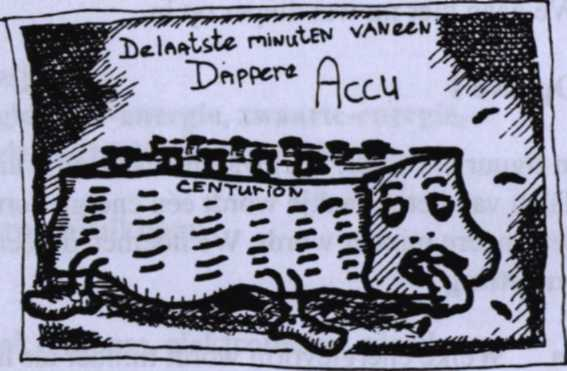 De laatste minuten van een
Dappere Accu
CENTURION